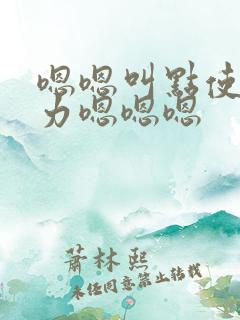 嗯嗯叫點使
力嗯嗯嗯
蕭林熙
未经同意禁止转载